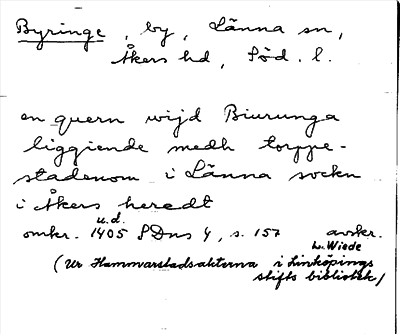 Byringe, by, Länna sn,
Åkers hd, Söd. l.
en quern wijd Biurunga
liggiende medh torppe-
stadenom i Länna sockn
i Åkers heredt
u.d.
omkr. 1405 SDns 4, s. 157 avskr.
L. Wiede
(Ur Hammarstadsakterna i Linköpings
stifts bibliotek)